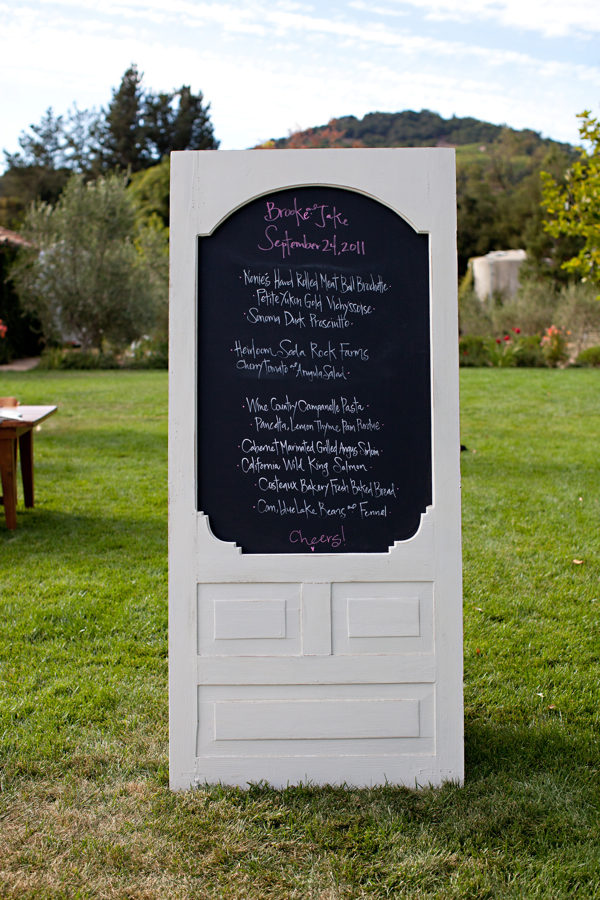 Brooke and Jake
September 24, 2011
· Nonie's Hand Rolled Meat Ball Brochette ·
· Petite Yukon Gold Vichyssoise ·
· Sonoma Duck Prosciutto ·
Heirloom Soda Rock Farms
Cherry Tomato and Arugula Salad ·
· Wine Country Campanelle Pasta ·
· Pancetta, Lemon Thyme, Pain Perdue
· Cabernet Marinated Grilled Angus Sirloin ·
· California Wild King Salmon ·
· Costeaux Bakery Fresh Baked Bread ·
· Corn, Blue Lake Beans and Fennel ·
Cheers!